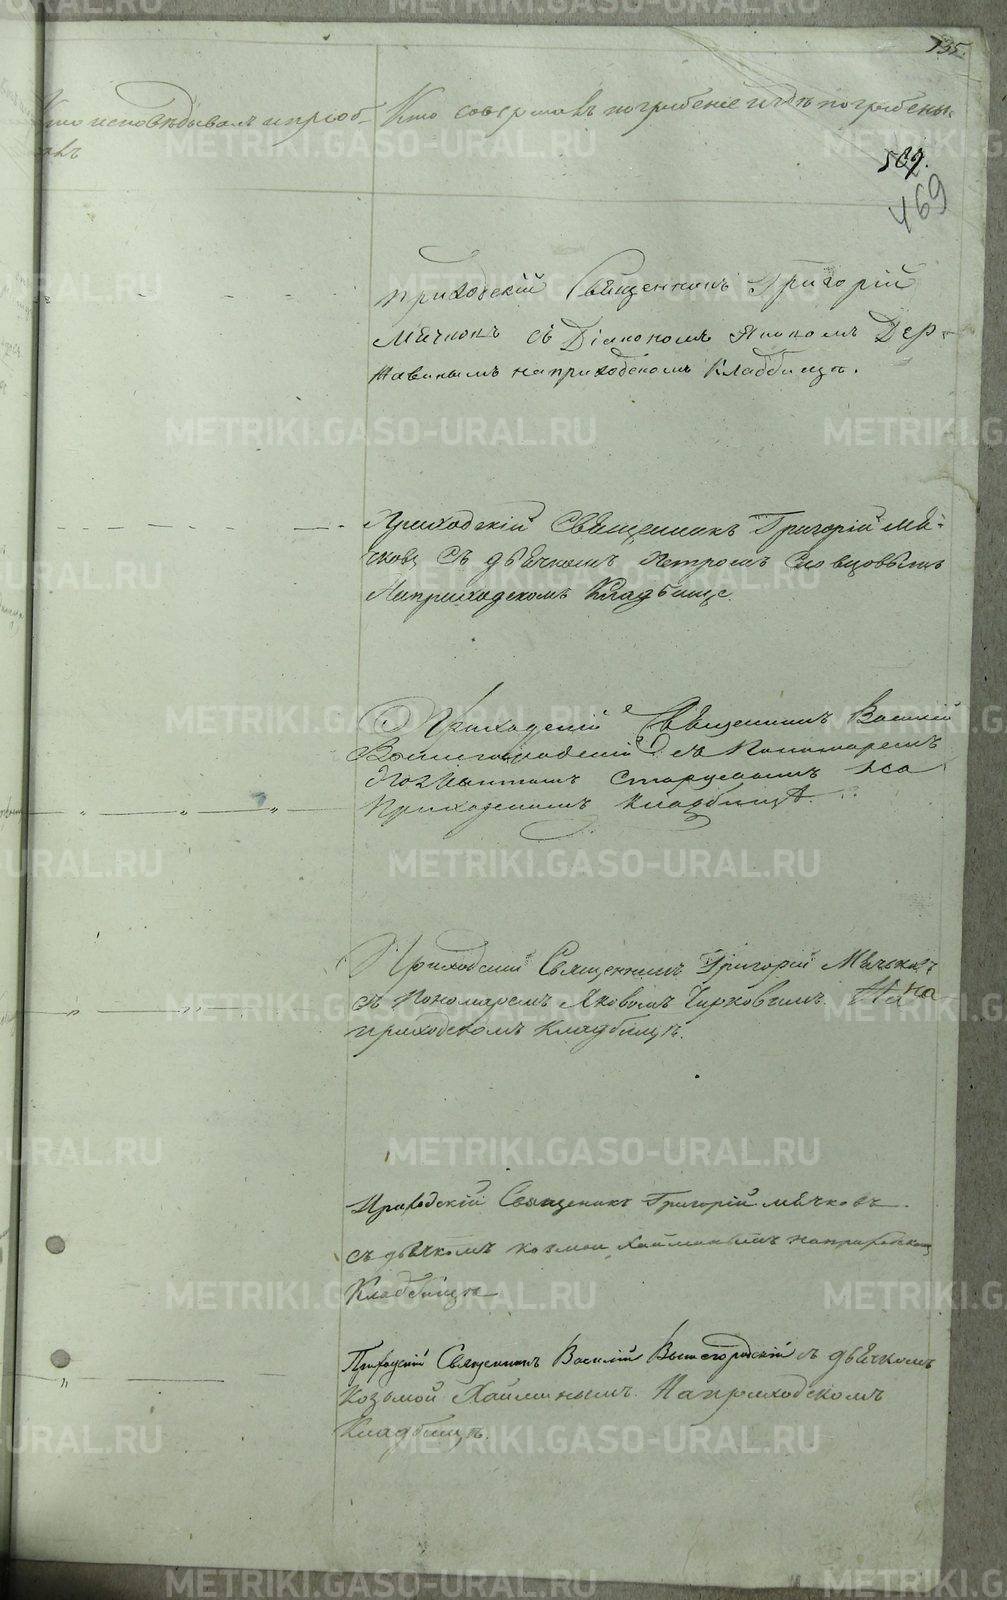 135.
Кто исповѣдывалъ и приоб-
Кто совершалъ погребеніе и гдѣ погребены.
щалъ
507.
469
Приходскій Священникъ Григорій
Мячковъ съ Діакономъ Яковомъ Дер-
жавинымъ на приходскомъ Кладбищѣ.
Приходскій Священникъ Григорій Мя-
чковъ съ дьячкомъ Петромъ Словцовымъ
На приходскомъ Кладбище.
Приходскій Священникъ Василій
Вышегородскій съ Пономаремъ
на
Приходскомъ кладбищѣ.
Приходскій Священникъ Григорій Мячковъ
съ Пономаремъ Яковомъ Чирковымъ На на
приходскомъ Кладбищѣ.
Приходскій Священикъ Григорій Мячковъ
съ дьячкомъ Козмою Хайминымъ на приходскомъ
Кладбищѣ
Приходскій Священникъ Василій Вышегородскій съ дьячкомъ
Козьмой Хайминымъ. На приходскомъ
Кладбищѣ.
METRIKI.GASO-URAL.RU